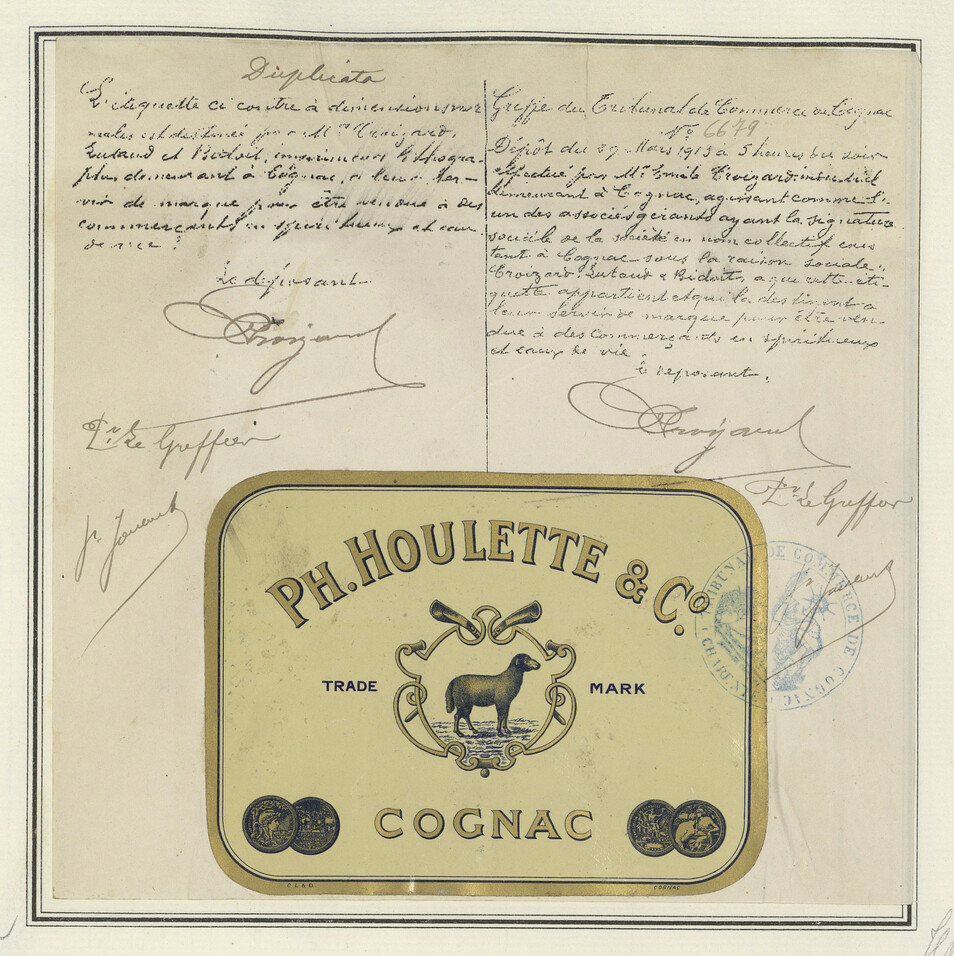 Duplicata
L'étiquette ci contre à dimensions nor
males est destinée par M.rs Croizard,
Lutaud et Bidoit, imprimeurs lithogra-
phes demeurant à Cognac, à leur ser-
vir de marque pour être vendue à des
commerçants en spiritueux et eau
de vie.
Le déposant
Croizard
Pr. Le Greffier
Greffe du Tribunal de Commerce de Cognac
No 6679
Dépôt du 29 Mars 1913 à 5 heures du soir
effectué par Mr Emile Croizard industriel
demeurant à Cognac, agissant comme l'
un des associés gérants ayant la signature
sociale de la société en nom collectif exis
tant à Cognac sous la raison sociale:
Croizard, Lutaud & Bidoit, à qui cette éti-
quette appartient et qui la destinent à
leur servir de marque pour être ven-
due à des commerçants en spiritueux
et eaux de vie.
Le déposant.
Croizard
Pr. Le Greffier
PH. HOULETTE & Co.
TRADE MARK
COGNAC
C. L & B.
COGNAC
TRIBUNAL DE COMMERCE DE COGNAC
CHARENTE